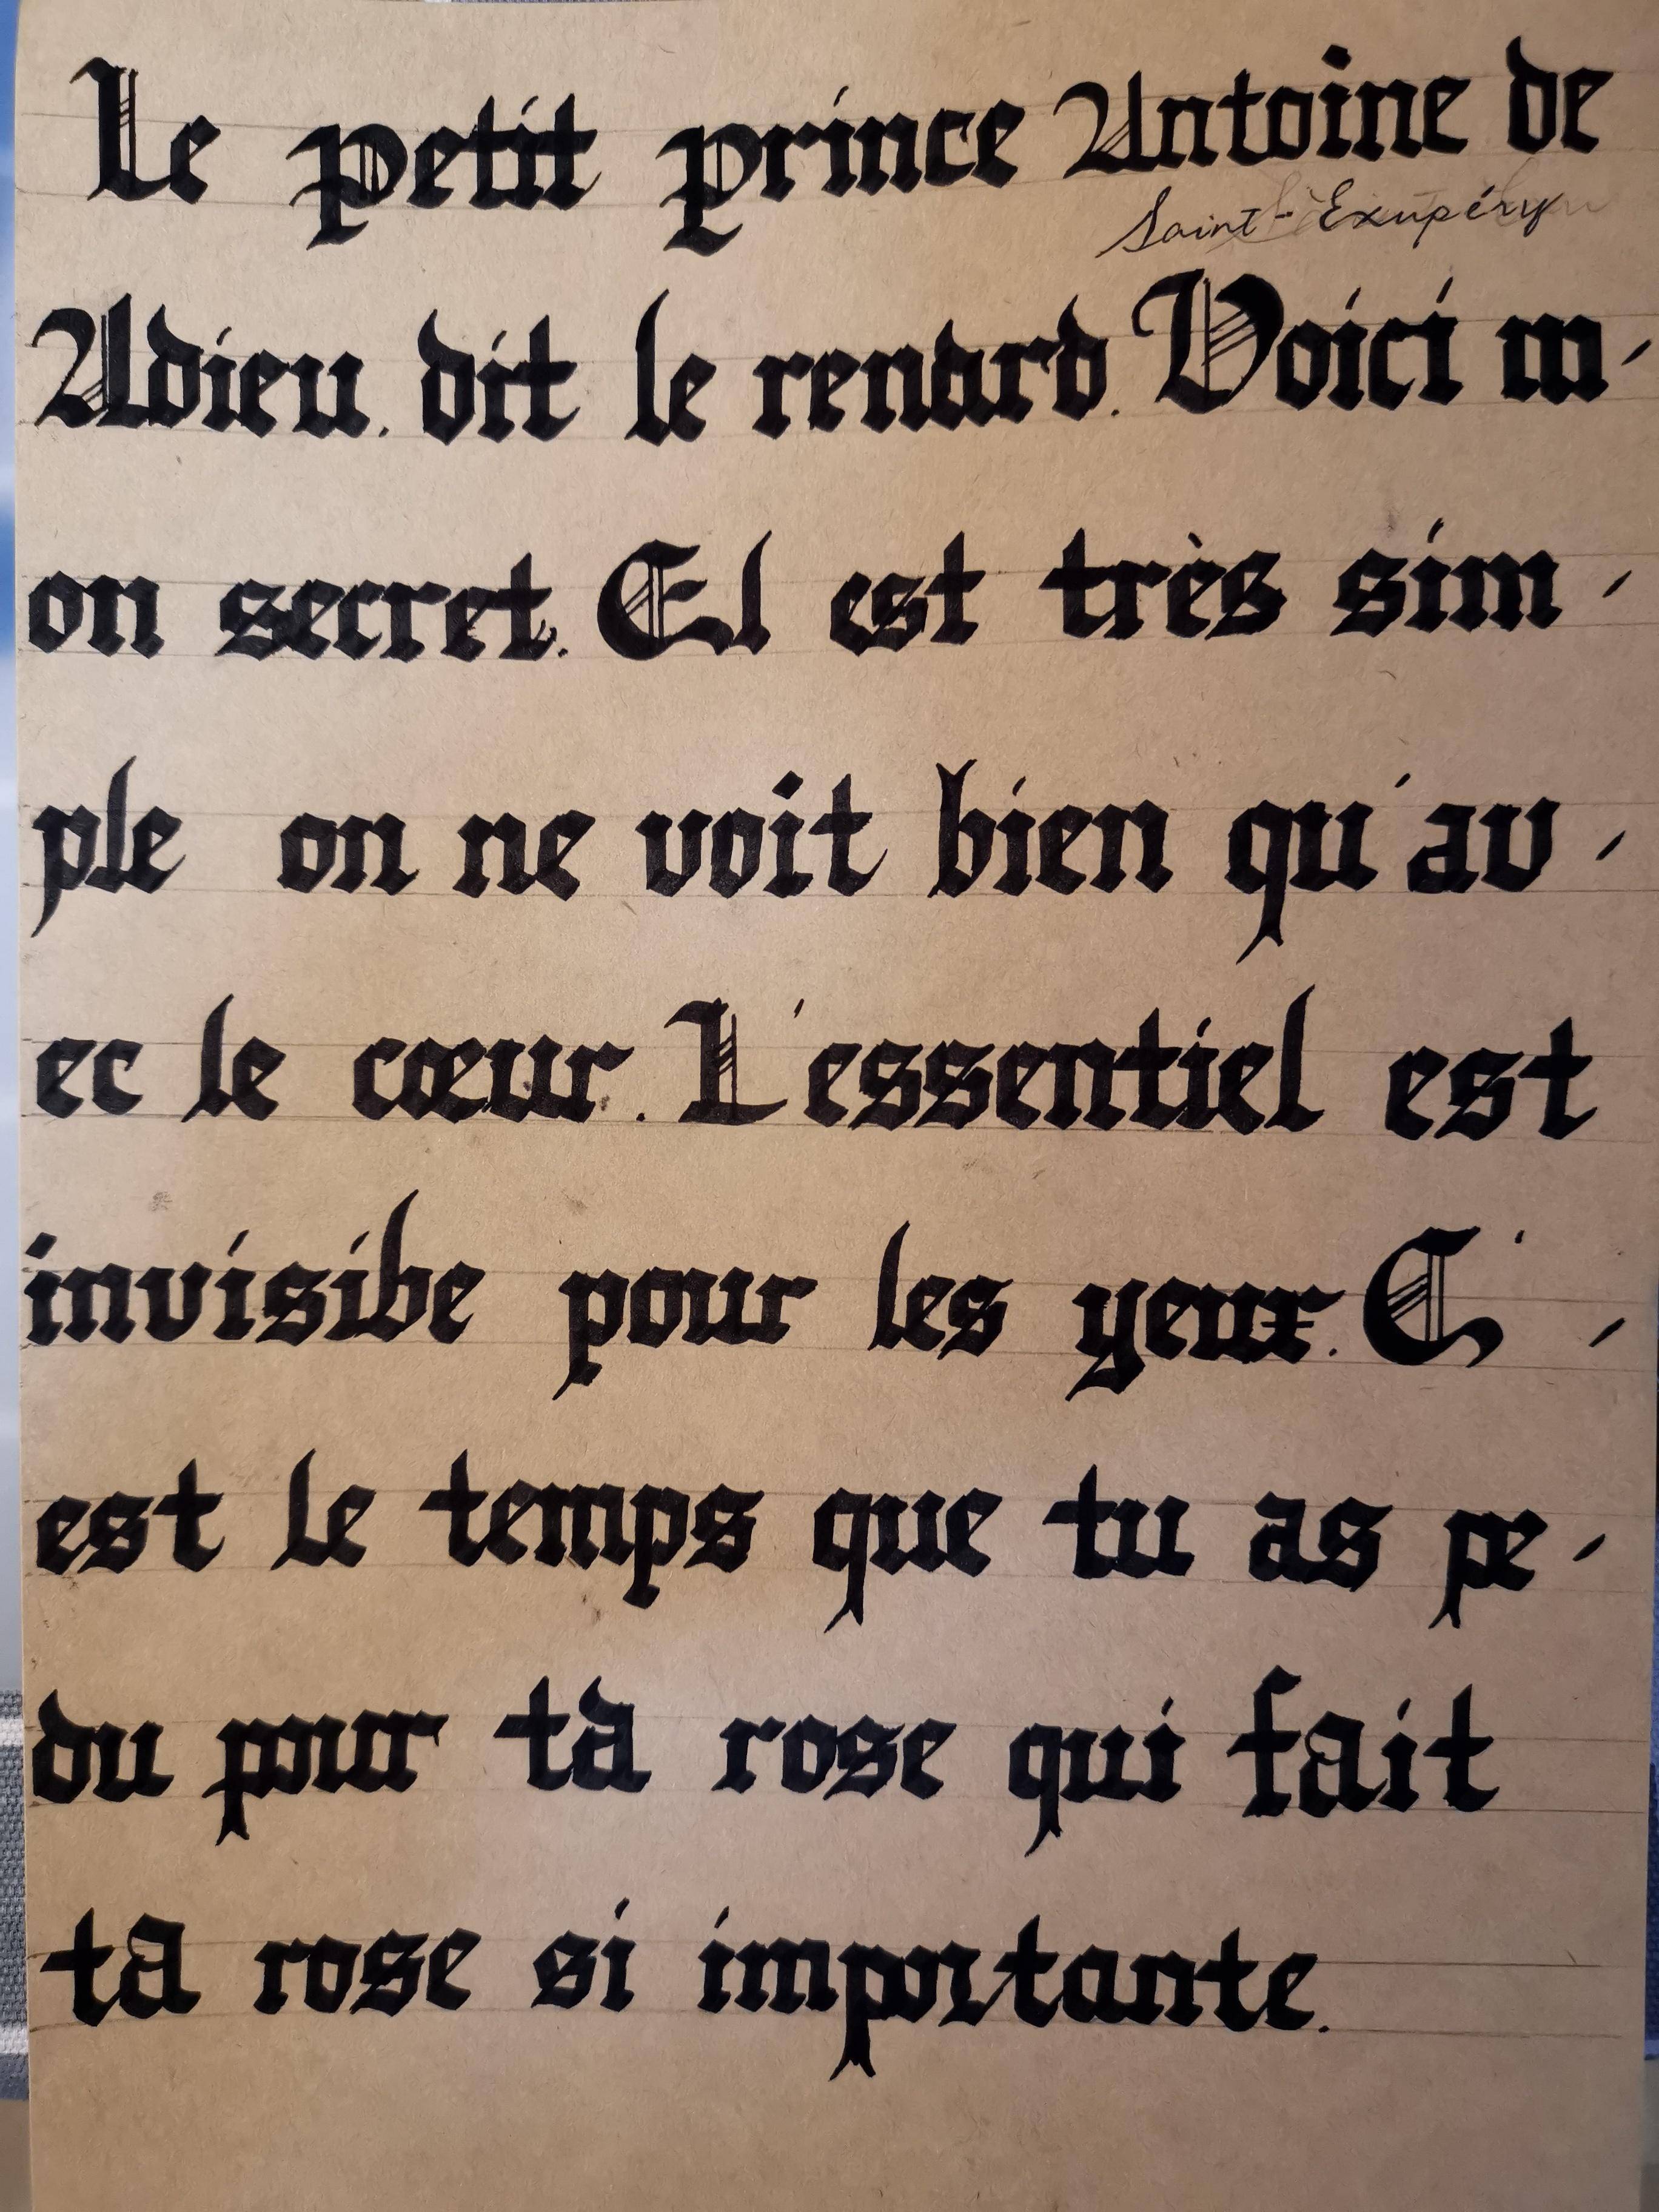 Le petit prince Antoine de
Saint-Exupéry
Adieu. dit le renard. Voici m-
on secret. El est très sim-
ple on ne voit bien qu'av-
ec le cœur. L'essentiel est
invisibe pour les yeux. C'-
est le temps que tu as pe-
du pour ta rose qui fait
ta rose si importante.